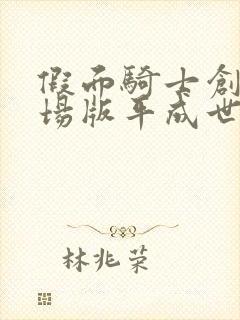 假面騎士創
場版平成世
林兆荣